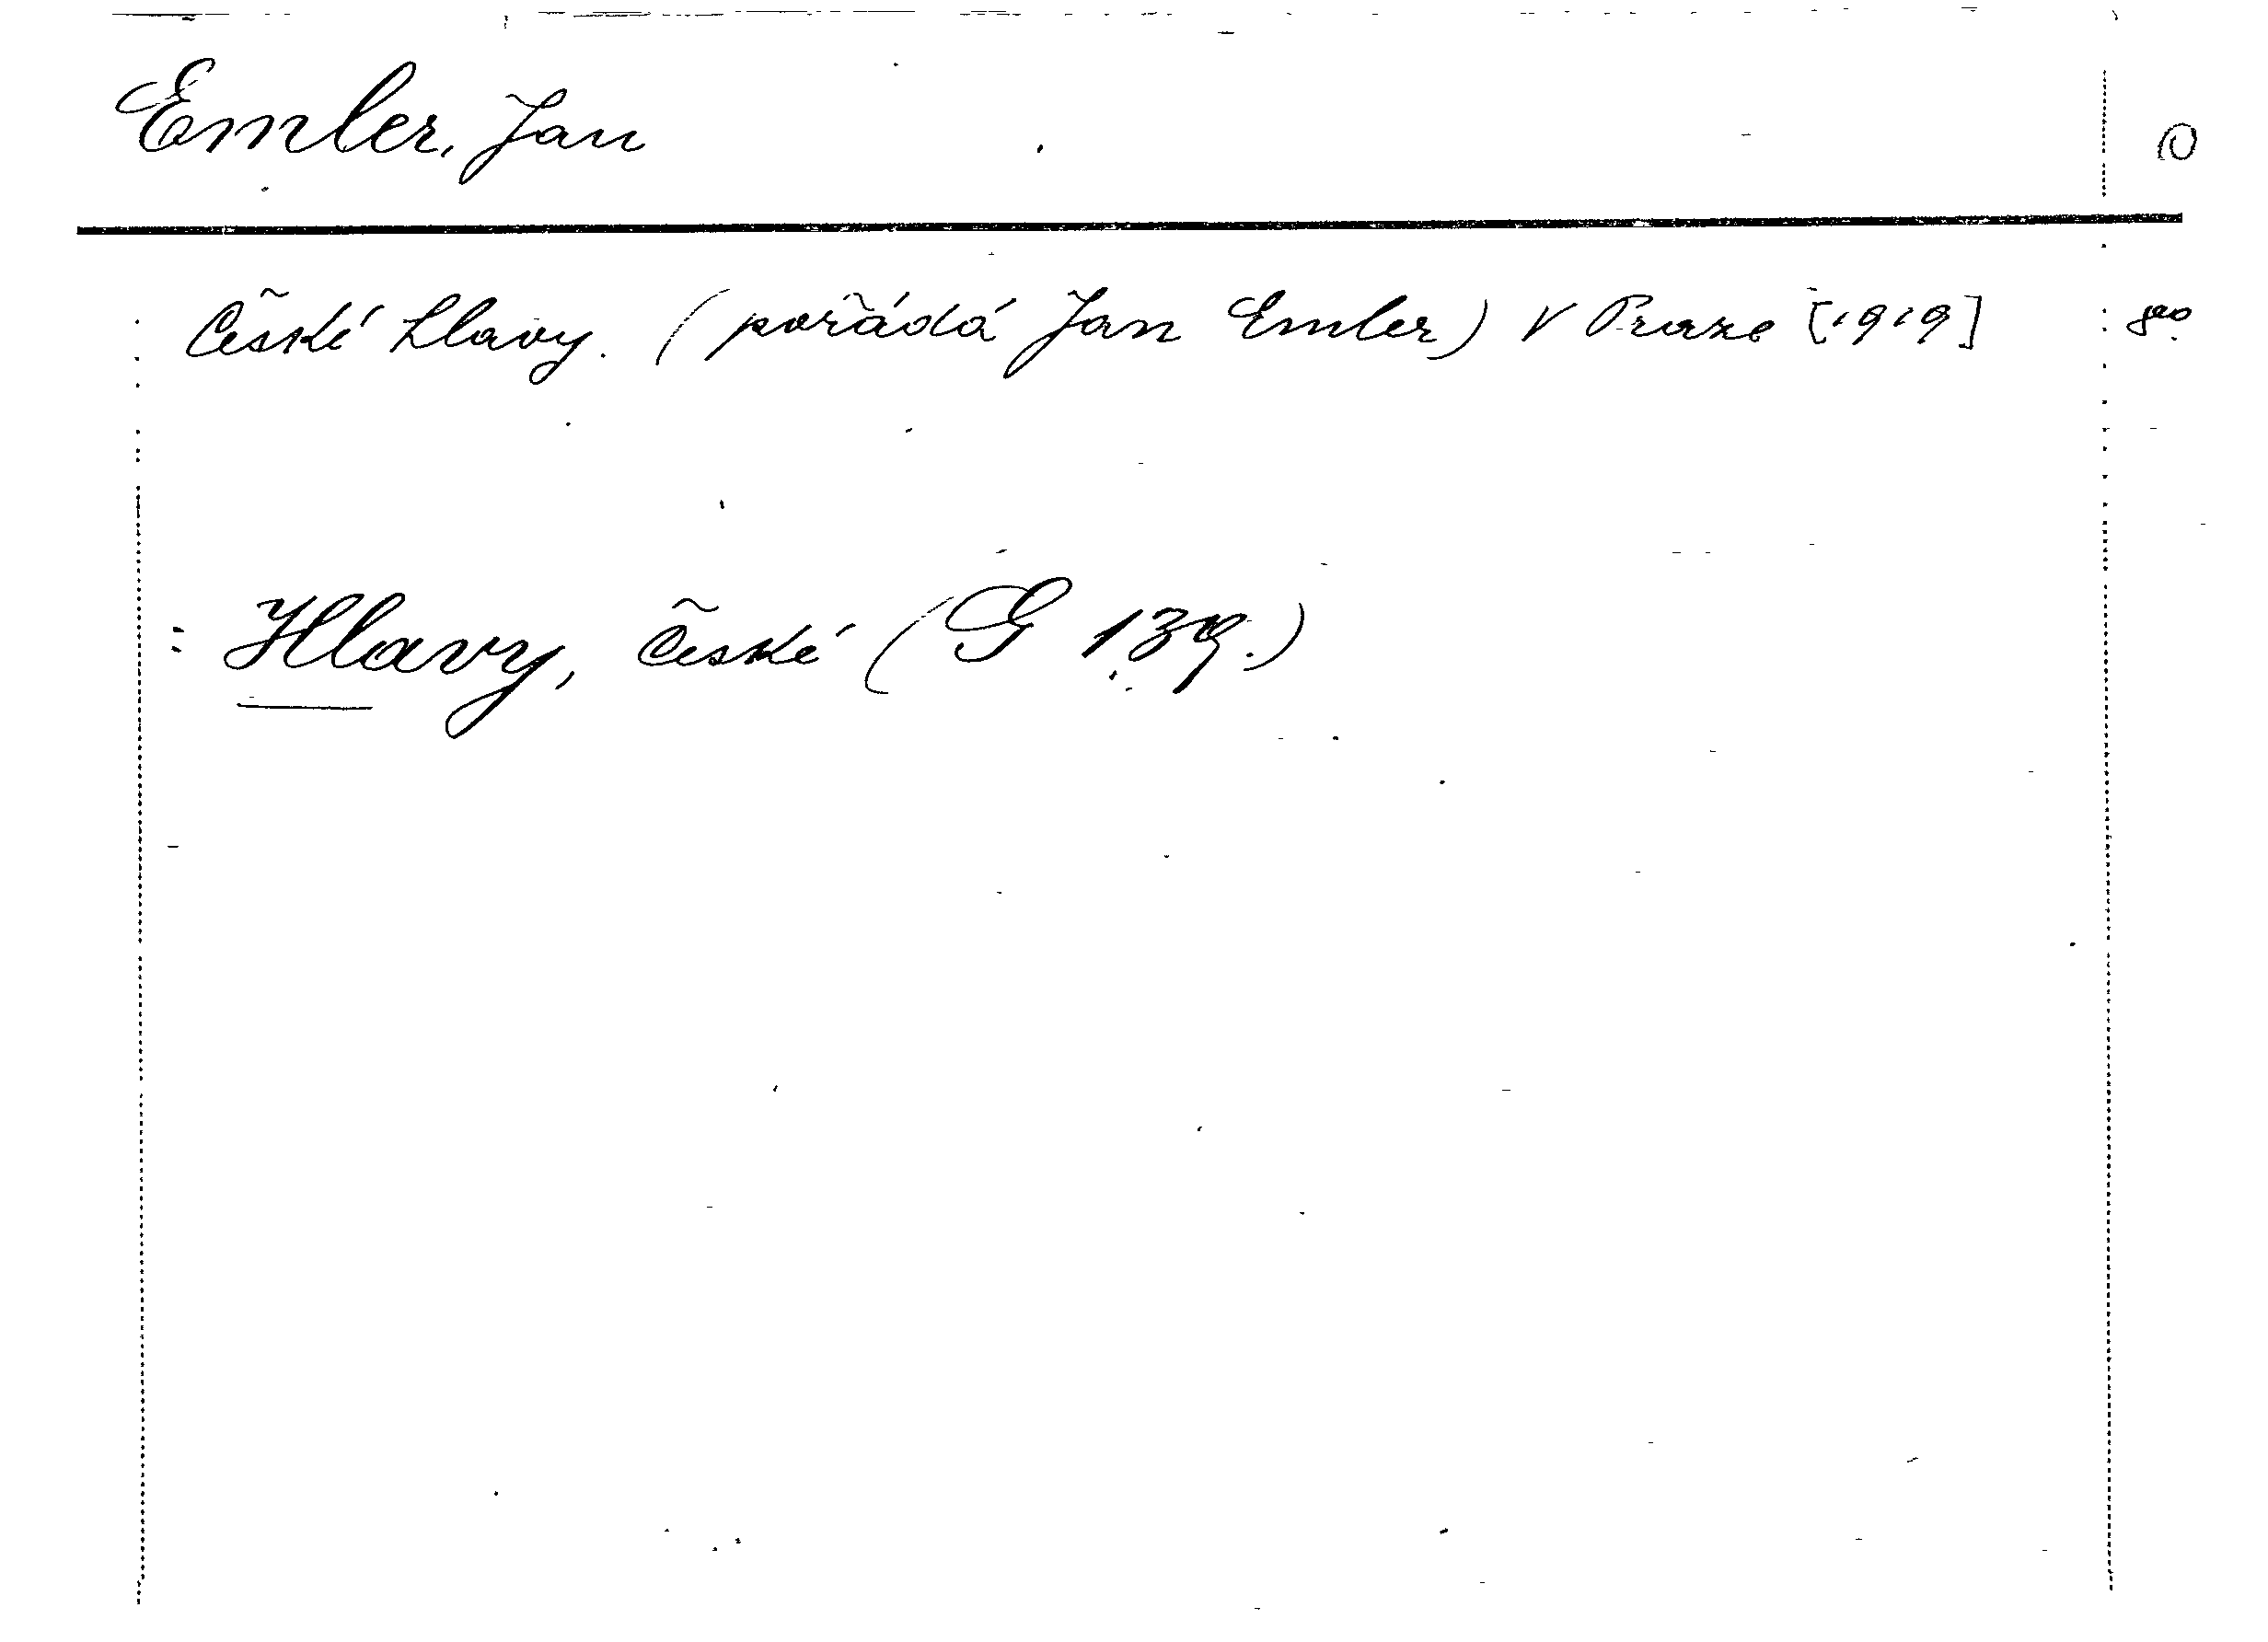 Emler, Jan
České hlavy. (pořádá Jan Emler) V Praze [1919] 8⁰.
= Hlavy, České (G 139.)